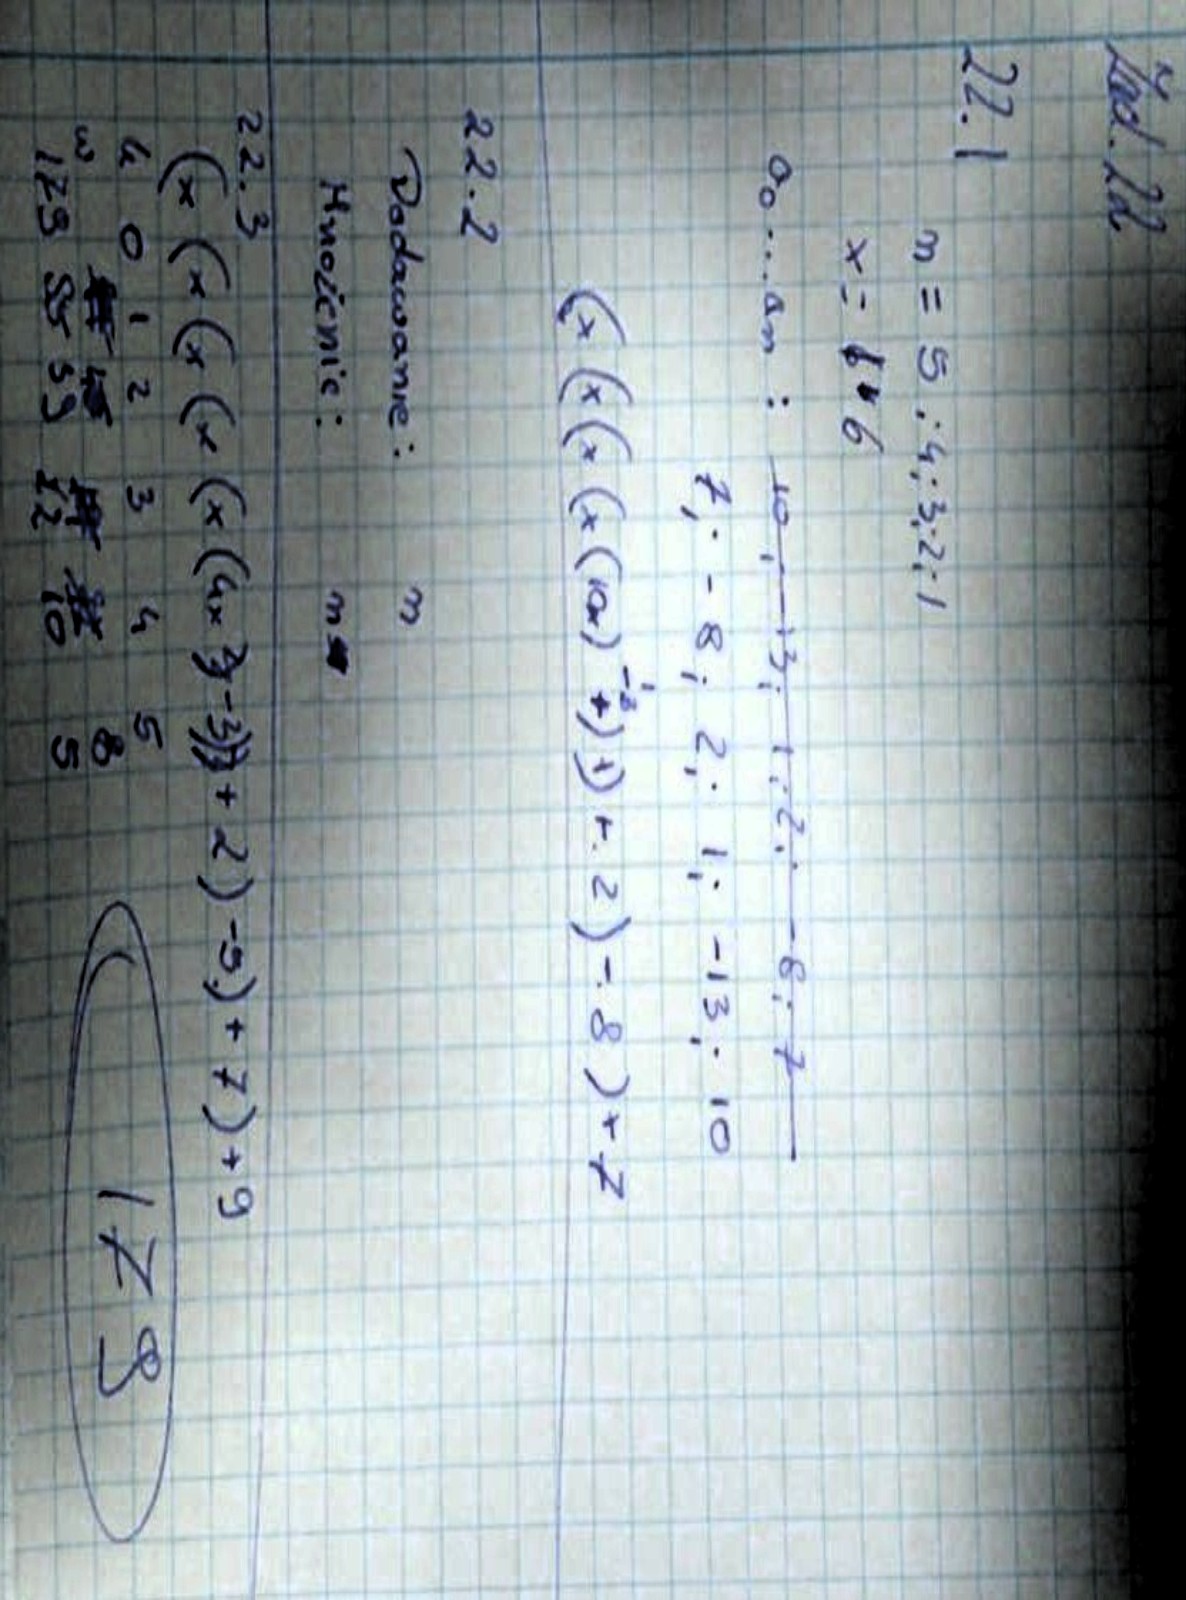 Zad. 22
22.1
n = 5 ; 4 ; 3 ; 2 ; 1
x = 6
a₀ ... aₙ : 10 ; -13 ; 1 ; 2 ; -8 ; 7
7 ; -8 ; 2 ; 1 ; -13 ; 10
(x (x (x (x (10x) -13 +) +1) + 2 ) - 8 ) + 7
22.2
Dodawanie : n
Mnożenie : n
22.3
(x (x (x (x (x (4x -3)) + 2 ) -5) + 7 ) + 9
k 0 1 2 3 4 5
8
w
179 85 39 12 10 5
179